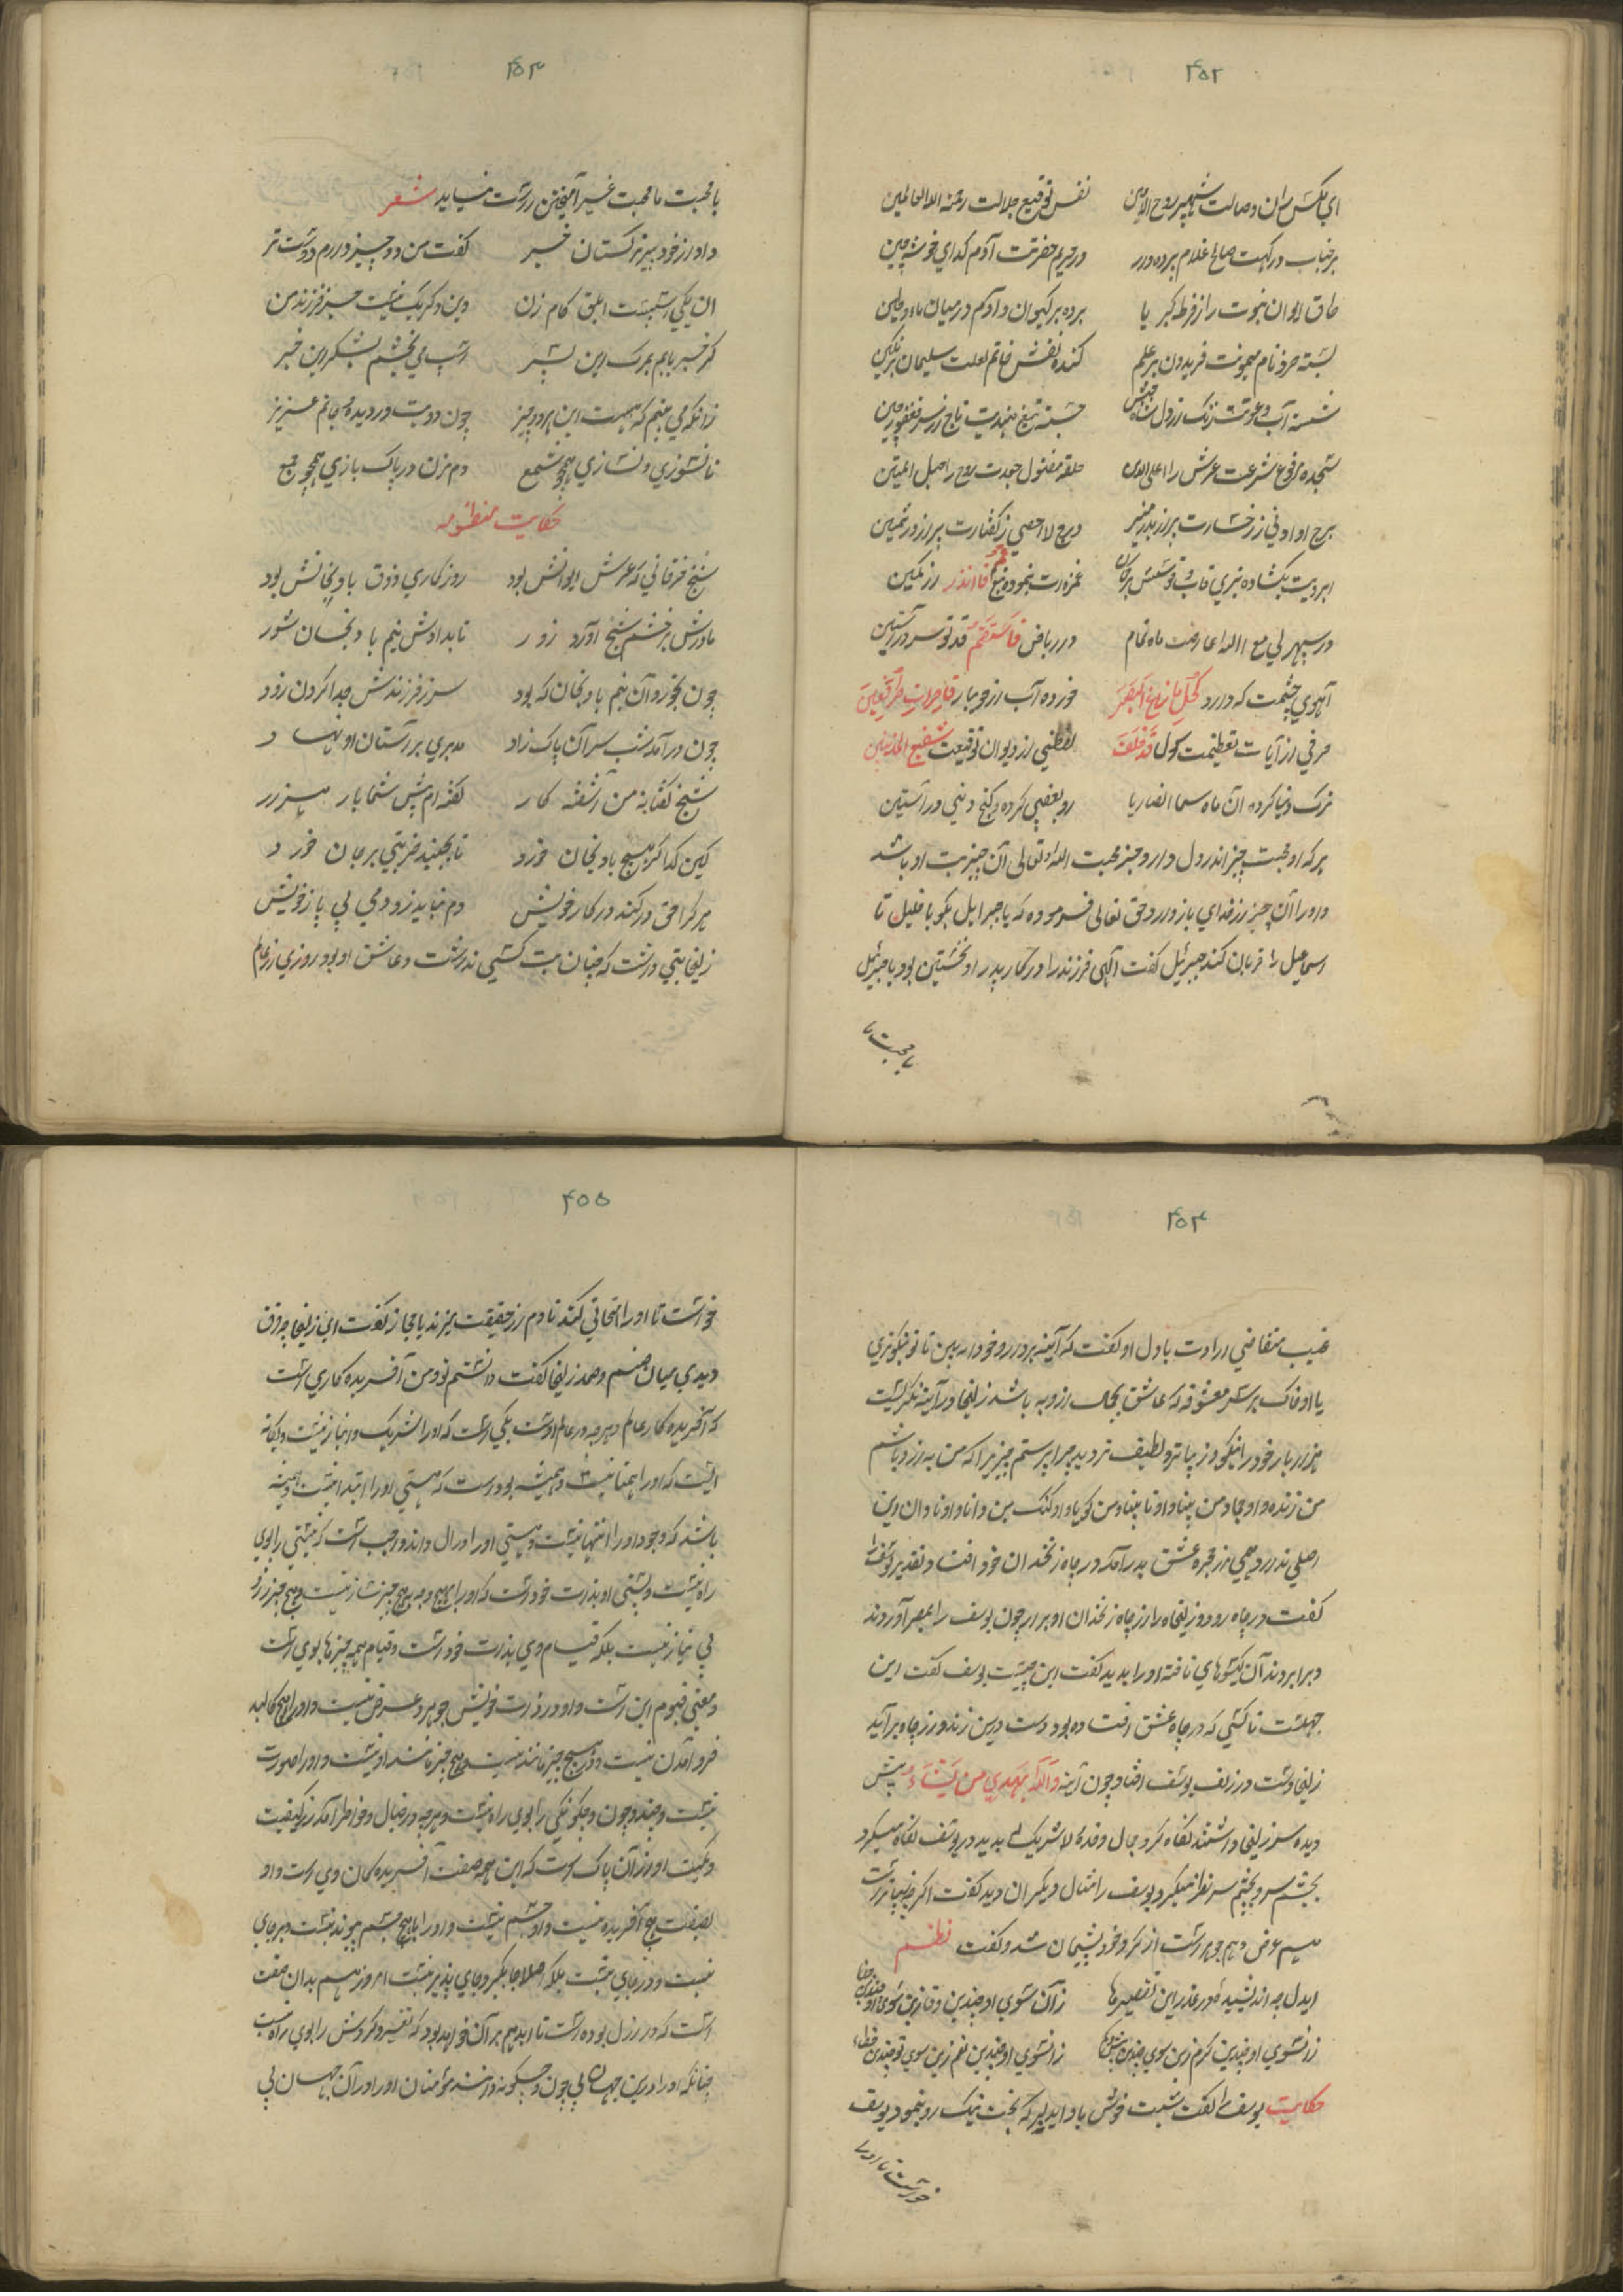 ۴۵۲
ای مگس ران وصالت شهپر روح الامین نقش توقیع جلالت رحمة للعالمین
بر جناب درگهت صالح غلام پرده در در حریم حضرتت آدم گدای خوشه چین
طاق ایوان نبوت را ز فرط کبریا برده بر کیوان و آدم در میان ماء و طین
بسته حرز نام میمونت فریدون بر علم کنده نقش خاتم لعلت سلیمان بر نگین
شسته آب دعوتت زنگ از دل شاه حبش جسته تیغ هندیت تاج از سر فغفور چین
سجده مرفوع شرعت عرش را اعلی حلقه مفتول جعدت روح را حبل المتین
برج او ادنی ز رخسارت پر از بدر منیر درج لا احصی ز گفتارت پر از در ثمین
ابرویت بگشاده تیری قاب قوسین بر غمزه‌ات بنموده تیغ قم فانذر از کمین
در سپهر لی مع الله عارضت ماه تمام در ریاض فاستقم قد تو سرو راستین
آهوی چشمت که دارد کحل ما زاغ البصر خورده آب از جویبار قاصرات طرف عین
حرفی از آیات تعظیمت لولاک لفظی از دیوان توقیعت شفیع المذنبین
ترک دنیا کرده آن ماه سما رو بعقبی کرده و گنج در آستین
هر که او محبت چیز اندر دل دارد جز محبت الله تعالی آن چیز بت او باشد
و او را آن چیز از خدای باز دارد حق تعالی فرموده که یا جبرایل بگو با خلیل تا
اسماعیل را قربان کند جبرئیل گفت الهی فرزند را در کار پدر او نخستین بود یا جبرئیل
با محبت ما
۴۵۳
با محبت ما محبت غیر آمیختن راست نیاید شعر
داد از خود پیر ترکستان خبر گفت من دو چیز دارم دوست تر
آن یکی اسبیست ابلق گام زن وین دگر یک نیست جز فرزند من
گر خبر یابم بمرگ این پسر اسب می بخشم بشکر این خبر
زانکه می بینم که هست این هر دو چیز چون دو بت در دیده جانم عزیز
تا نسوزی و نسازی همچو شمع دم مزن در پاک بازی همچو جمع
حکایت منظومه
شیخ خرقانی که عرش ایوانش بود روزگاری ذوق بادنجانش بود
مادرش بر خشم شیخ آورد زور تا بدادش نیم بادنجان شور
چون بخورد آن نیم بادنجان که بود سر ز فرزندش جدا کردن زود
چون در آمد شب سر آن پاک زاد مدبری بر آستان او نهاد
شیخ گفتا نه من آشفته کار گفته ام پیش شما بار هزار
کین گدا گر هیچ بادنجان خورد تا بجنبد ضربتی بر جان خورد
هر کرا حق در کشد در کار خویش دم نیارد زد دمی بی یار خویش
زلیخا بتی داشت که چنان بت کسی نداشت و عاشق او بود روزی از عالم
۴۵۴
غیب متقاضی ارادت با دل او گفت که آینه بردار و خود را ببین تا تو نیکوتری
یا او خاک بر سر معشوقه که عاشق بجمال ازو به باشد زلیخا در آینه نگریست
هزار بار خود را نیکو و زیباتر و لطیف تر دید چرا پرستم چیزیرا که من به از و باشم
من زنده و او جماد من بینا و او نابینا و من گویا و او گنگ من دانا و او نادان این
اصلی ندارد همی از حجره عشق بدر آمد در چاه زنخدان خود افتاد و تقدیر یوسف را
گفت در چاه رو و زلیخا را از چاه زنخدان او برار چون یوسف را بمصر آوردند
و برابر بردند آن گیسوهای تافته او را بدید گفت این چیست یوسف گفت این
حبلست تا کسی که در چاه عشق افتاده بود دست درین زند و از چاه برآید
زلیخا دست در زلف یوسف افتاد چون آینه والله یهدی من یشاء پیش
دیده سر زلیخا داشتند نگاه کرد جمال وحده لا شریک له بدید در یوسف نگاه میکرد
بچشم سر و بچشم سر نظر میکرد یوسف را مثال دیگران دید گفت اگر چه زیباتر است
هم عرض و هم جوهر است از کرد خود پشیمان شد و گفت نظم
ایدل چه اندیشیده در عذر این تقصیرها زان سوی او چندین وفا زین سوی تو چندین جفا
زانسوی او چندین کرم زین سوی چندین زانسوی او چندین نعم زین سوی تو چندین خطا
حکایت یوسف را گفت شبت خوش باد ایدلبر که بخت نیک رو نمود یوسف
خواست تا او را
۴۵۵
خواست تا او را امتحانی کند تا دم از حقیقت میزند یا مجاز گفت ای زلیخا چه فرق
دیدی میان صنم و صمد زلیخا گفت دانستم تو و من آفریده کاری است
که آفریده کار عالم و هر چه در عالم اوست یکی است که او را شریک و انباز نیست و یگانه
است که او را همتا نیست و همیشه بوده است که هستی او را ابتدا نیست و همیشه
باشد که وجود او را انتها نیست و هستی او را ازل و ابد واجب است که نیستی را بوی
راه نیست و هستی او بذات خود است که او را هیچ وجه بهیچ چیز نیاز نیست و هیچ چیز از و
بی نیاز نیست بلکه قیام وی بذات خود است و قیام همه چیزها بوی است
و معنی قیوم این است و او در ذات خویش جوهر و عرض نیست و او را بهیچ کالبد
فرو آمدن نیست و او بهیچ چیز مانند نیست و هیچ چیز مانند او نیست و او را صورت
نیست و چند و چون و چگونگی را بوی راه نیست و هر چه در خیال و خواطر آمد از کیفیت
و کمیت او از آن پاک است که این همه صفت آفریده کان وی است و او
بصفت هیچ آفریده نیست و او جسم نیست و او را با هیچ جسم پیوند نیست و بر جای
نیست و در جای نیست بلکه اصلا جایگیر و جای پذیر نیست امروز هم بدان صفت
است که در ازل بوده است تا ابد هم بر آن خواهد بود که تغییر و گردش را بوی راه نیست
چنانکه او را درین جهان بی چون و چگونه دانند مؤمنان او را در آن جهان بی